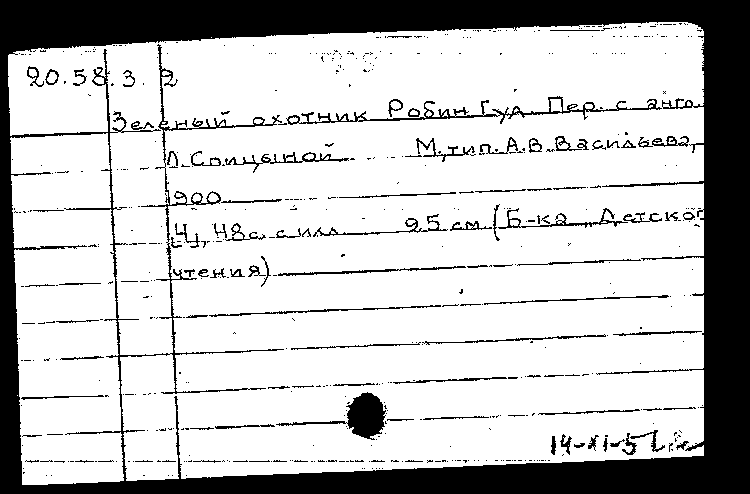 20.58.3.2
Зеленый охотник Робин Гуд. Пер. с англ.
Л. Спицыной М., тип. А.В. Васильева,
1900
[4], 48 с. с илл. 25 см (Б-ка „Детского
чтения)
14-XI-5